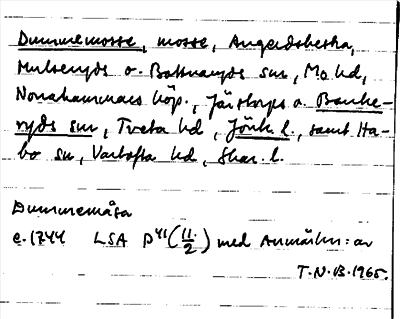 Dummemosse, mosse, Angerdshestra,
Mulseryds o. Bottnaryds sn, Mo hd,
Norrahammars köp., Järstorps o. Banke-
ryds sn, Tveta hd, Jönk. l., samt Ha-
bo sn, Vartofta hd, Skar. l.
Dummemåsa
c. 1744 LSA P41 (11:2) med Anmärkn: av
T.N.B. 1965.